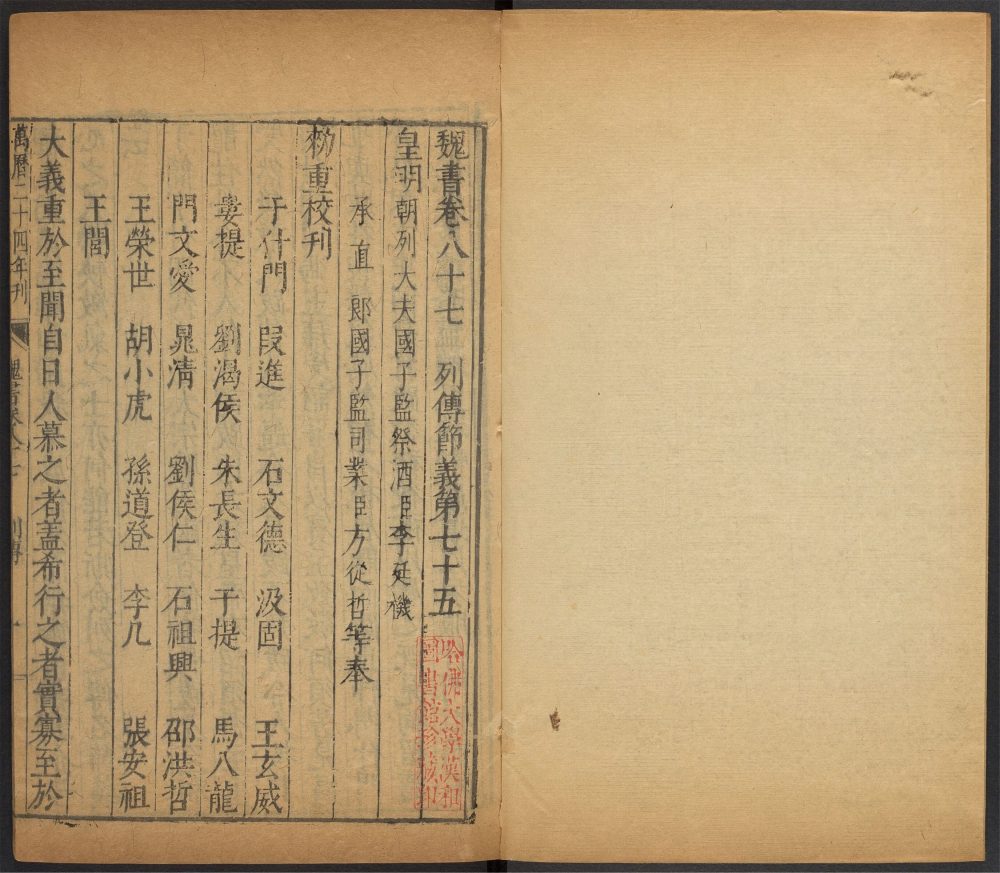 魏書卷八十七　列傳節義第七十五
皇明朝列大夫國子監祭酒臣李廷機
承直郎國子監司業臣方從哲等奉
勑重校刊
于什門　段進　石文德　汲固　王玄威
婁提　劉渴侯　朱長生　于提　馬八龍
門文愛　晁淸　劉侯仁　石祖興　邵洪哲
王榮世　胡小虎　孫道登　李几　張安祖
王閭
大義重於至聞自日人慕之者蓋希行之者實寡至於
萬曆二十四年刊
魏書卷八十七　列傳　一
哈佛大學漢和
圖書館珍藏印